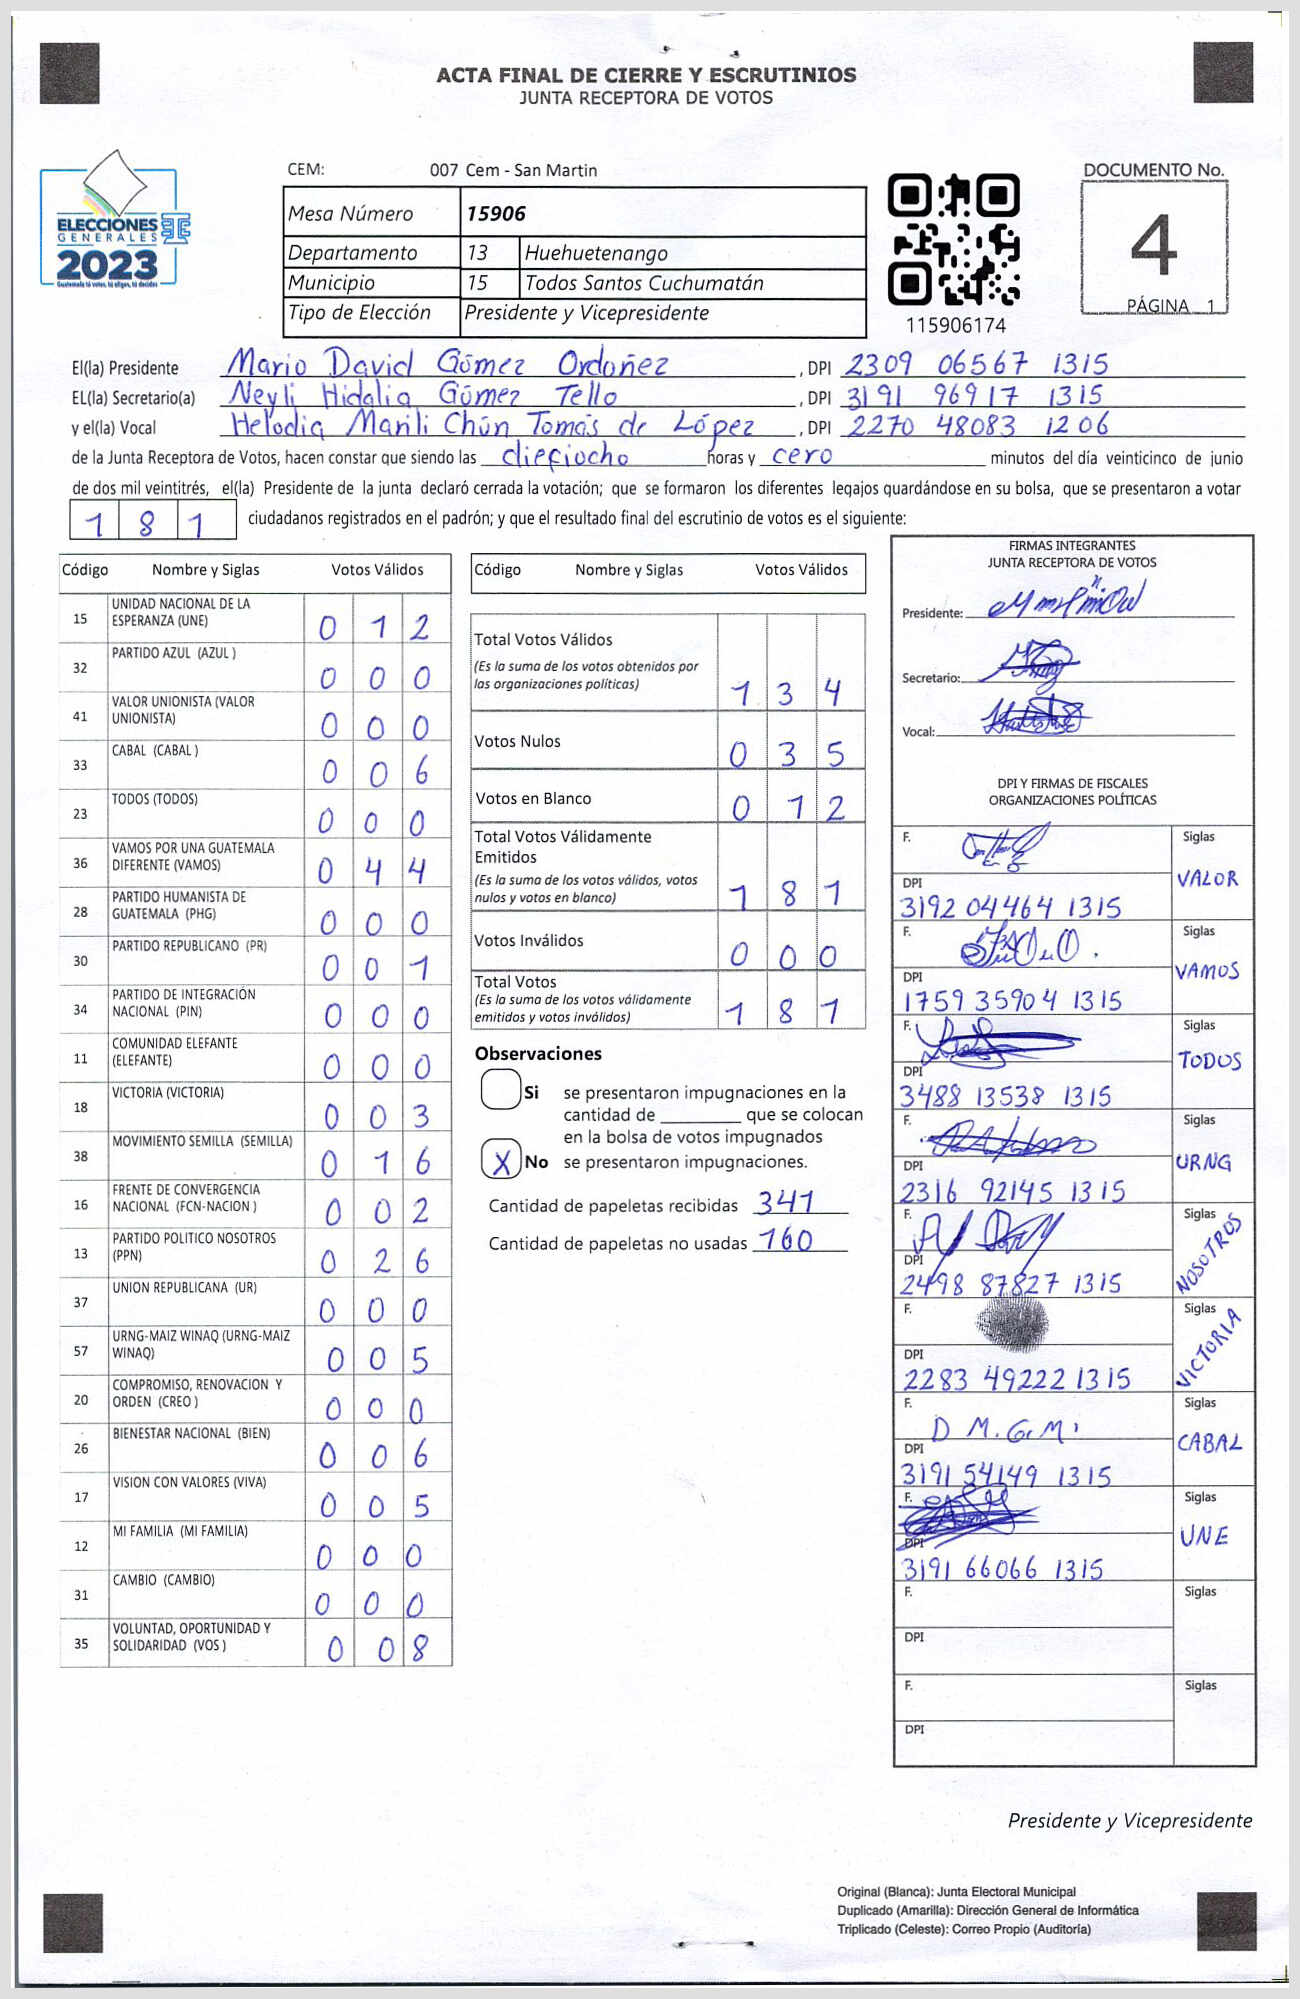 ACTA FINAL DE CIERRE Y ESCRUTINIOS
JUNTA RECEPTORA DE VOTOS
ELECCIONES
GENERALES
2023
Guatemala tú votas, tú eliges, tú decides
CEM: 007 Cem - San Martin
Mesa Número 15906
Departamento 13 Huehuetenango
Municipio 15 Todos Santos Cuchumatán
Tipo de Elección Presidente y Vicepresidente
115906174
DOCUMENTO No.
4
PÁGINA 1
El(la) Presidente Mario David Gómez Ordoñez, DPI 2309 06567 1315
EL(la) Secretario(a) Neyli Hidalia Gómez Tello, DPI 3191 96917 1315
y el(la) Vocal Helodia Marili Chún Tomás de López, DPI 2270 48083 1206
de la Junta Receptora de Votos, hacen constar que siendo las dieciocho horas y cero minutos del día veinticinco de junio
de dos mil veintitrés, el(la) Presidente de la junta declaró cerrada la votación; que se formaron los diferentes legajos guardándose en su bolsa, que se presentaron a votar
181 ciudadanos registrados en el padrón; y que el resultado final del escrutinio de votos es el siguiente:
Código Nombre y Siglas Votos Válidos
15 UNIDAD NACIONAL DE LA ESPERANZA (UNE) 0 1 2
32 PARTIDO AZUL (AZUL ) 0 0 0
41 VALOR UNIONISTA (VALOR UNIONISTA) 0 0 0
33 CABAL (CABAL ) 0 0 6
23 TODOS (TODOS) 0 0 0
36 VAMOS POR UNA GUATEMALA DIFERENTE (VAMOS) 0 4 4
28 PARTIDO HUMANISTA DE GUATEMALA (PHG) 0 0 0
30 PARTIDO REPUBLICANO (PR) 0 0 1
34 PARTIDO DE INTEGRACIÓN NACIONAL (PIN) 0 0 0
11 COMUNIDAD ELEFANTE (ELEFANTE) 0 0 0
18 VICTORIA (VICTORIA) 0 0 3
38 MOVIMIENTO SEMILLA (SEMILLA) 0 1 6
16 FRENTE DE CONVERGENCIA NACIONAL (FCN-NACION ) 0 0 2
13 PARTIDO POLITICO NOSOTROS (PPN) 0 2 6
37 UNION REPUBLICANA (UR) 0 0 0
57 URNG-MAIZ WINAQ (URNG-MAIZ WINAQ) 0 0 5
20 COMPROMISO, RENOVACION Y ORDEN (CREO ) 0 0 0
26 BIENESTAR NACIONAL (BIEN) 0 0 6
17 VISION CON VALORES (VIVA) 0 0 5
12 MI FAMILIA (MI FAMILIA) 0 0 0
31 CAMBIO (CAMBIO) 0 0 0
35 VOLUNTAD, OPORTUNIDAD Y SOLIDARIDAD (VOS ) 0 0 8
Código Nombre y Siglas Votos Válidos
Total Votos Válidos
(Es la suma de los votos obtenidos por
las organizaciones políticas) 1 3 4
Votos Nulos 0 3 5
Votos en Blanco 0 1 2
Total Votos Válidamente
Emitidos
(Es la suma de los votos válidos, votos
nulos y votos en blanco) 1 8 1
Votos Inválidos 0 0 0
Total Votos
(Es la suma de los votos válidamente
emitidos y votos inválidos) 1 8 1
Observaciones
Si se presentaron impugnaciones en la
cantidad de ________ que se colocan
en la bolsa de votos impugnados
X No se presentaron impugnaciones.
Cantidad de papeletas recibidas 341
Cantidad de papeletas no usadas 160
FIRMAS INTEGRANTES
JUNTA RECEPTORA DE VOTOS
Presidente:
Secretario:
Vocal:
DPI Y FIRMAS DE FISCALES
ORGANIZACIONES POLÍTICAS
F. Siglas
DPI VALOR
3192 04464 1315
F. Siglas
DPI VAMOS
1759 35904 1315
F. Siglas
DPI TODOS
3488 13538 1315
F. Siglas
DPI URNG
2316 92145 1315
F. Siglas
DPI NOSOTROS
2498 87827 1315
F. Siglas
DPI VICTORIA
2283 49222 1315
F. D M. G. M. Siglas
DPI CABAL
3191 54149 1315
F. Siglas
DPI UNE
3191 66066 1315
F. Siglas
DPI
F. Siglas
DPI
Presidente y Vicepresidente
Original (Blanca): Junta Electoral Municipal
Duplicado (Amarilla): Dirección General de Informática
Triplicado (Celeste): Correo Propio (Auditoría)